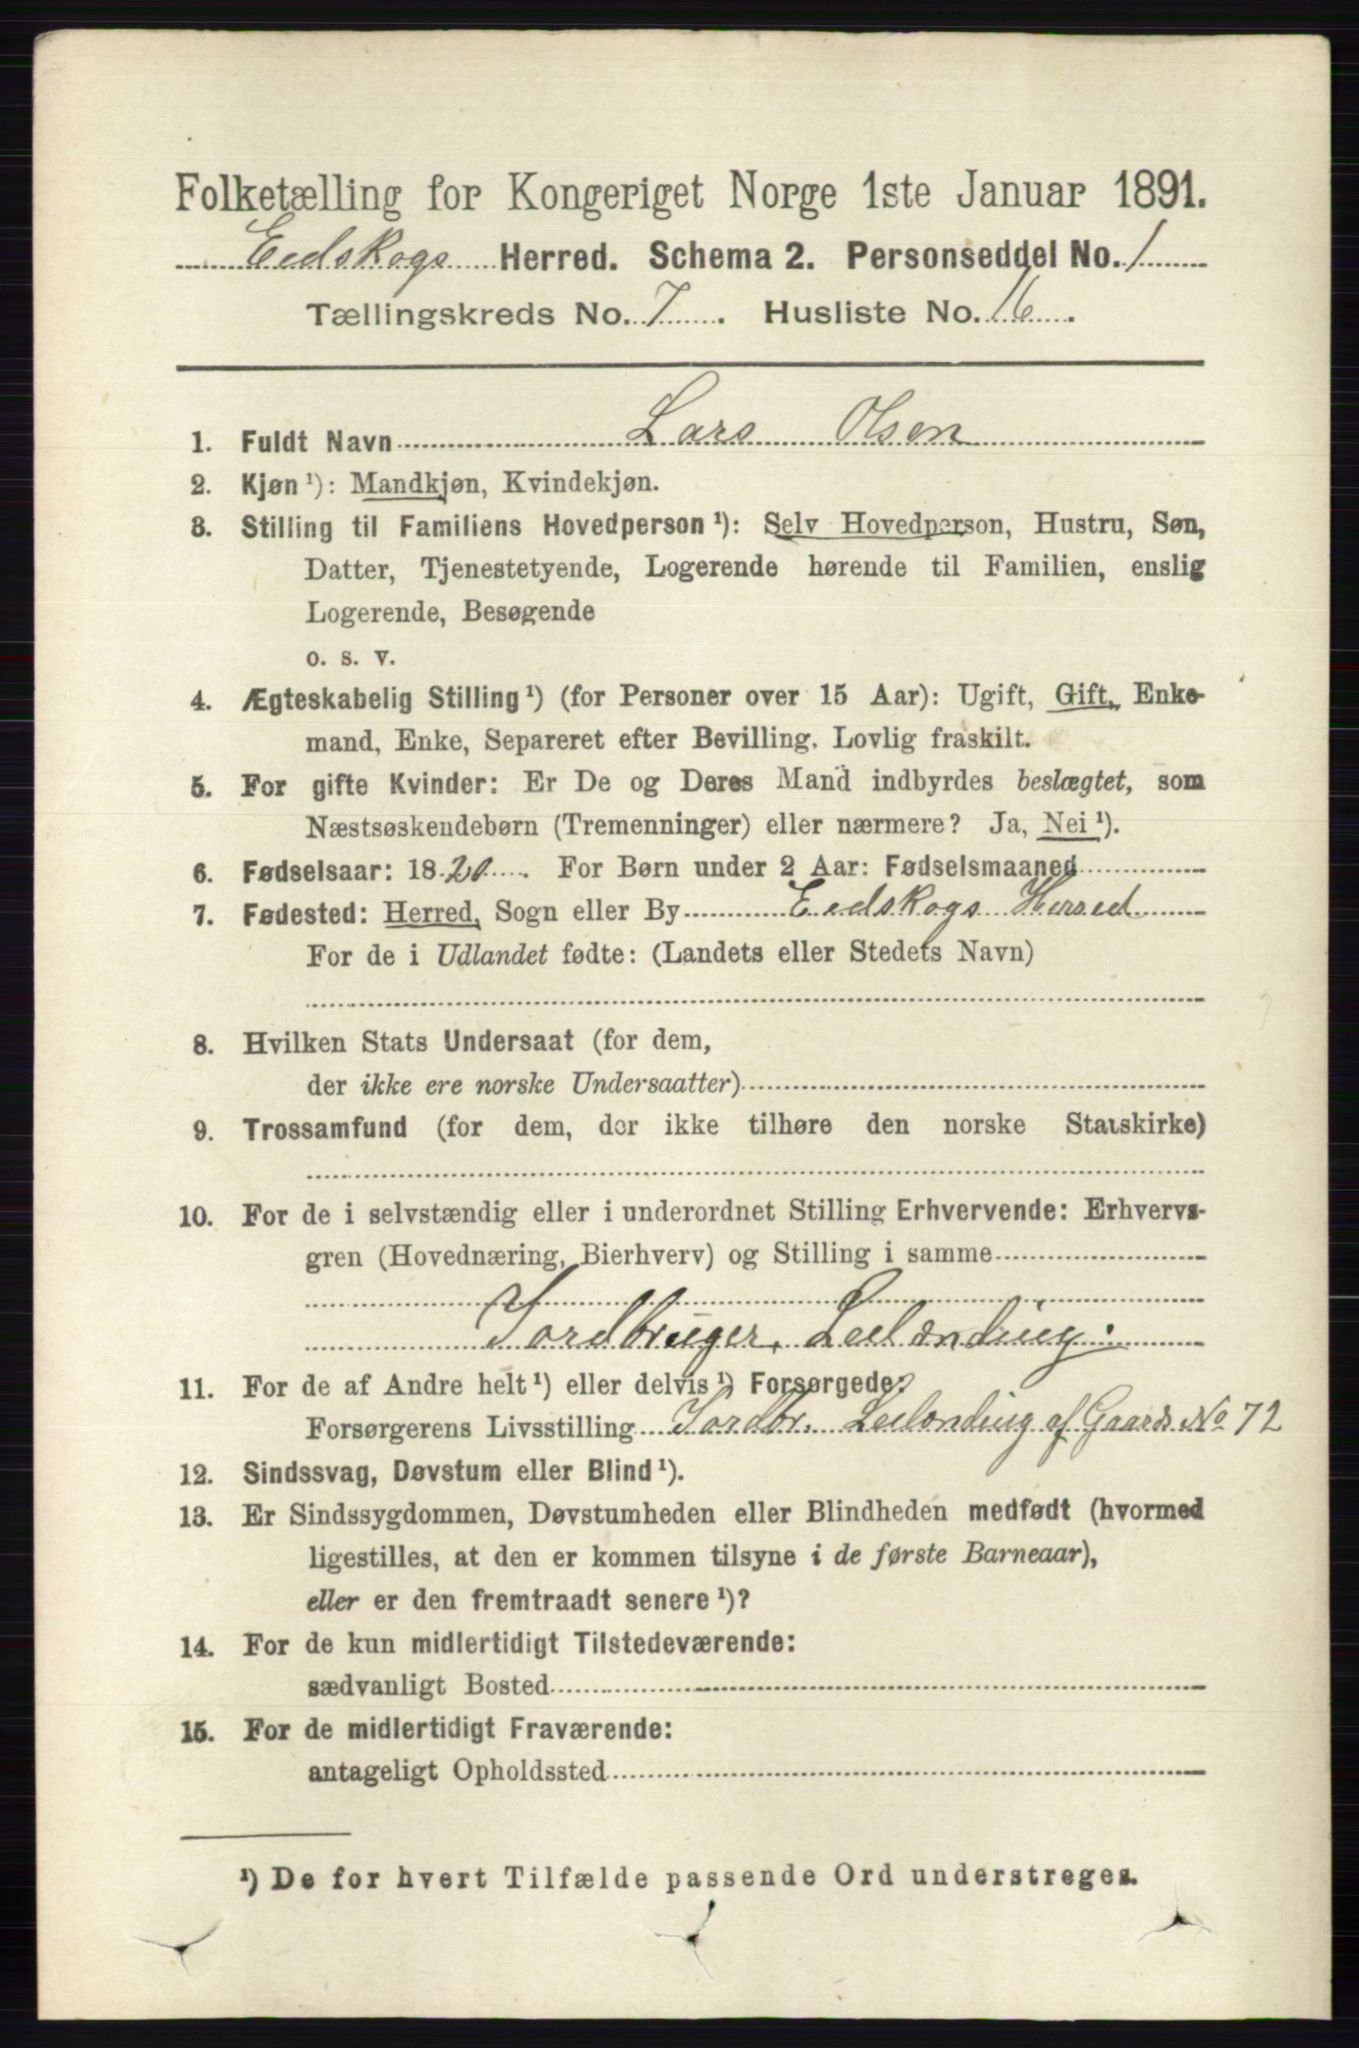 Folketælling for Kongeriget Norge 1ste Januar 1891.
Eidskogs Herred. Schema 2. Personseddel No. 1
Tællingskreds No. 7. Husliste No. 16.
1. Fuldt Navn Lars Olsen
2. Kjøn ¹): Mandkjøn, Kvindekjøn.
3. Stilling til Familiens Hovedperson ¹): Selv Hovedperson, Hustru, Søn,
Datter, Tjenestetyende, Logerende hørende til Familien, enslig
Logerende, Besøgende
o. s. v.
4. Ægteskabelig Stilling ¹) (for Personer over 15 Aar): Ugift, Gift, Enke-
mand, Enke, Separeret efter Bevilling. Lovlig fraskilt.
5. For gifte Kvinder: Er De og Deres Mand indbyrdes beslægtet, som
Næstsøskendebørn (Tremenninger) eller nærmere? Ja, Nei ¹).
6. Fødselsaar: 1820. For Børn under 2 Aar: Fødselsmaaned
7. Fødested: Herred, Sogn eller By Eidskogs Herred
For de i Udlandet fødte: (Landets eller Stedets Navn)
8. Hvilken Stats Undersaat (for dem,
der ikke ere norske Undersaatter)
9. Trossamfund (for dem, der ikke tilhøre den norske Statskirke)
10. For de i selvstændig eller i underordnet Stilling Erhvervende: Erhvervs-
gren (Hovednæring, Bierhverv) og Stilling i samme
Jordbruger. Leilænding.
11. For de af Andre helt ¹) eller delvis ¹) Forsørgede:
Forsørgerens Livsstilling Jordbr. Leilænding af Gaards No 72
12. Sindssvag, Døvstum eller Blind ¹).
13. Er Sindssygdommen, Døvstumheden eller Blindheden medfødt (hvormed
ligestilles, at den er kommen tilsyne i de første Barneaar),
eller er den fremtraadt senere ¹)?
14. For de kun midlertidigt Tilstedeværende:
sædvanligt Bosted
15. For de midlertidigt Fraværende:
antageligt Opholdssted
¹) De for hvert Tilfælde passende Ord understreges.